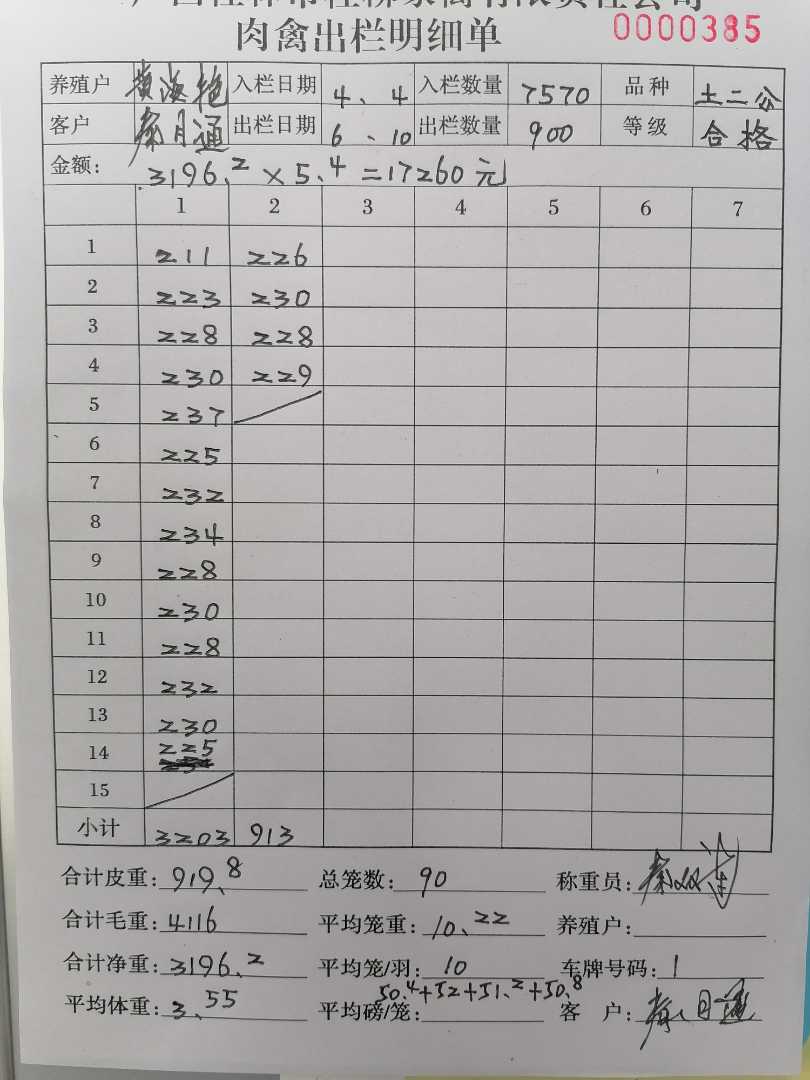 肉禽出栏明细单
0000385
养殖户 黄海艳 入栏日期 4、4 入栏数量 7570 品种 土二公
客户 秦月通 出栏日期 6、10 出栏数量 900 等级 合格
金额: 3196.2×5.4=17260元
1 2 3 4 5 6 7
1 211 226
2 223 230
3 228 228
4 230 229
5 237
6 225
7 232
8 234
9 228
10 230
11 228
12 232
13 230
14 225
15
小计 3203 913
合计皮重: 919.8 总笼数: 90 称重员:
合计毛重: 4116 平均笼重: 10.22 养殖户:
合计净重: 3196.2 平均笼/羽: 10 车牌号码: 1
50.4+52+51.2+50.8
平均体重: 3.55 平均磅/笼: 客 户: 秦月通